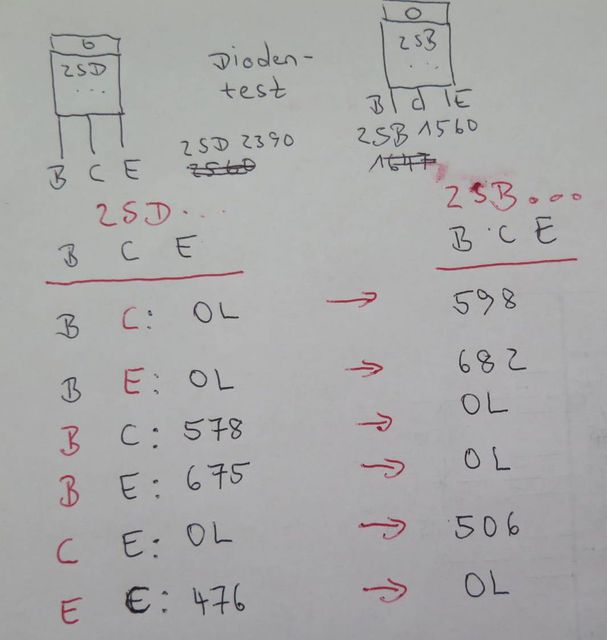 2SD
...
Dioden-
test
2SB
....
B C E
B C E
2SD 2390
2560
2SB 1560
1647
2SD...
B C E
2SB...
B C E
B C: OL → 598
B E: OL → 682
B C: 578 → OL
B E: 675 → OL
C E: OL → 506
E C: 476 → OL